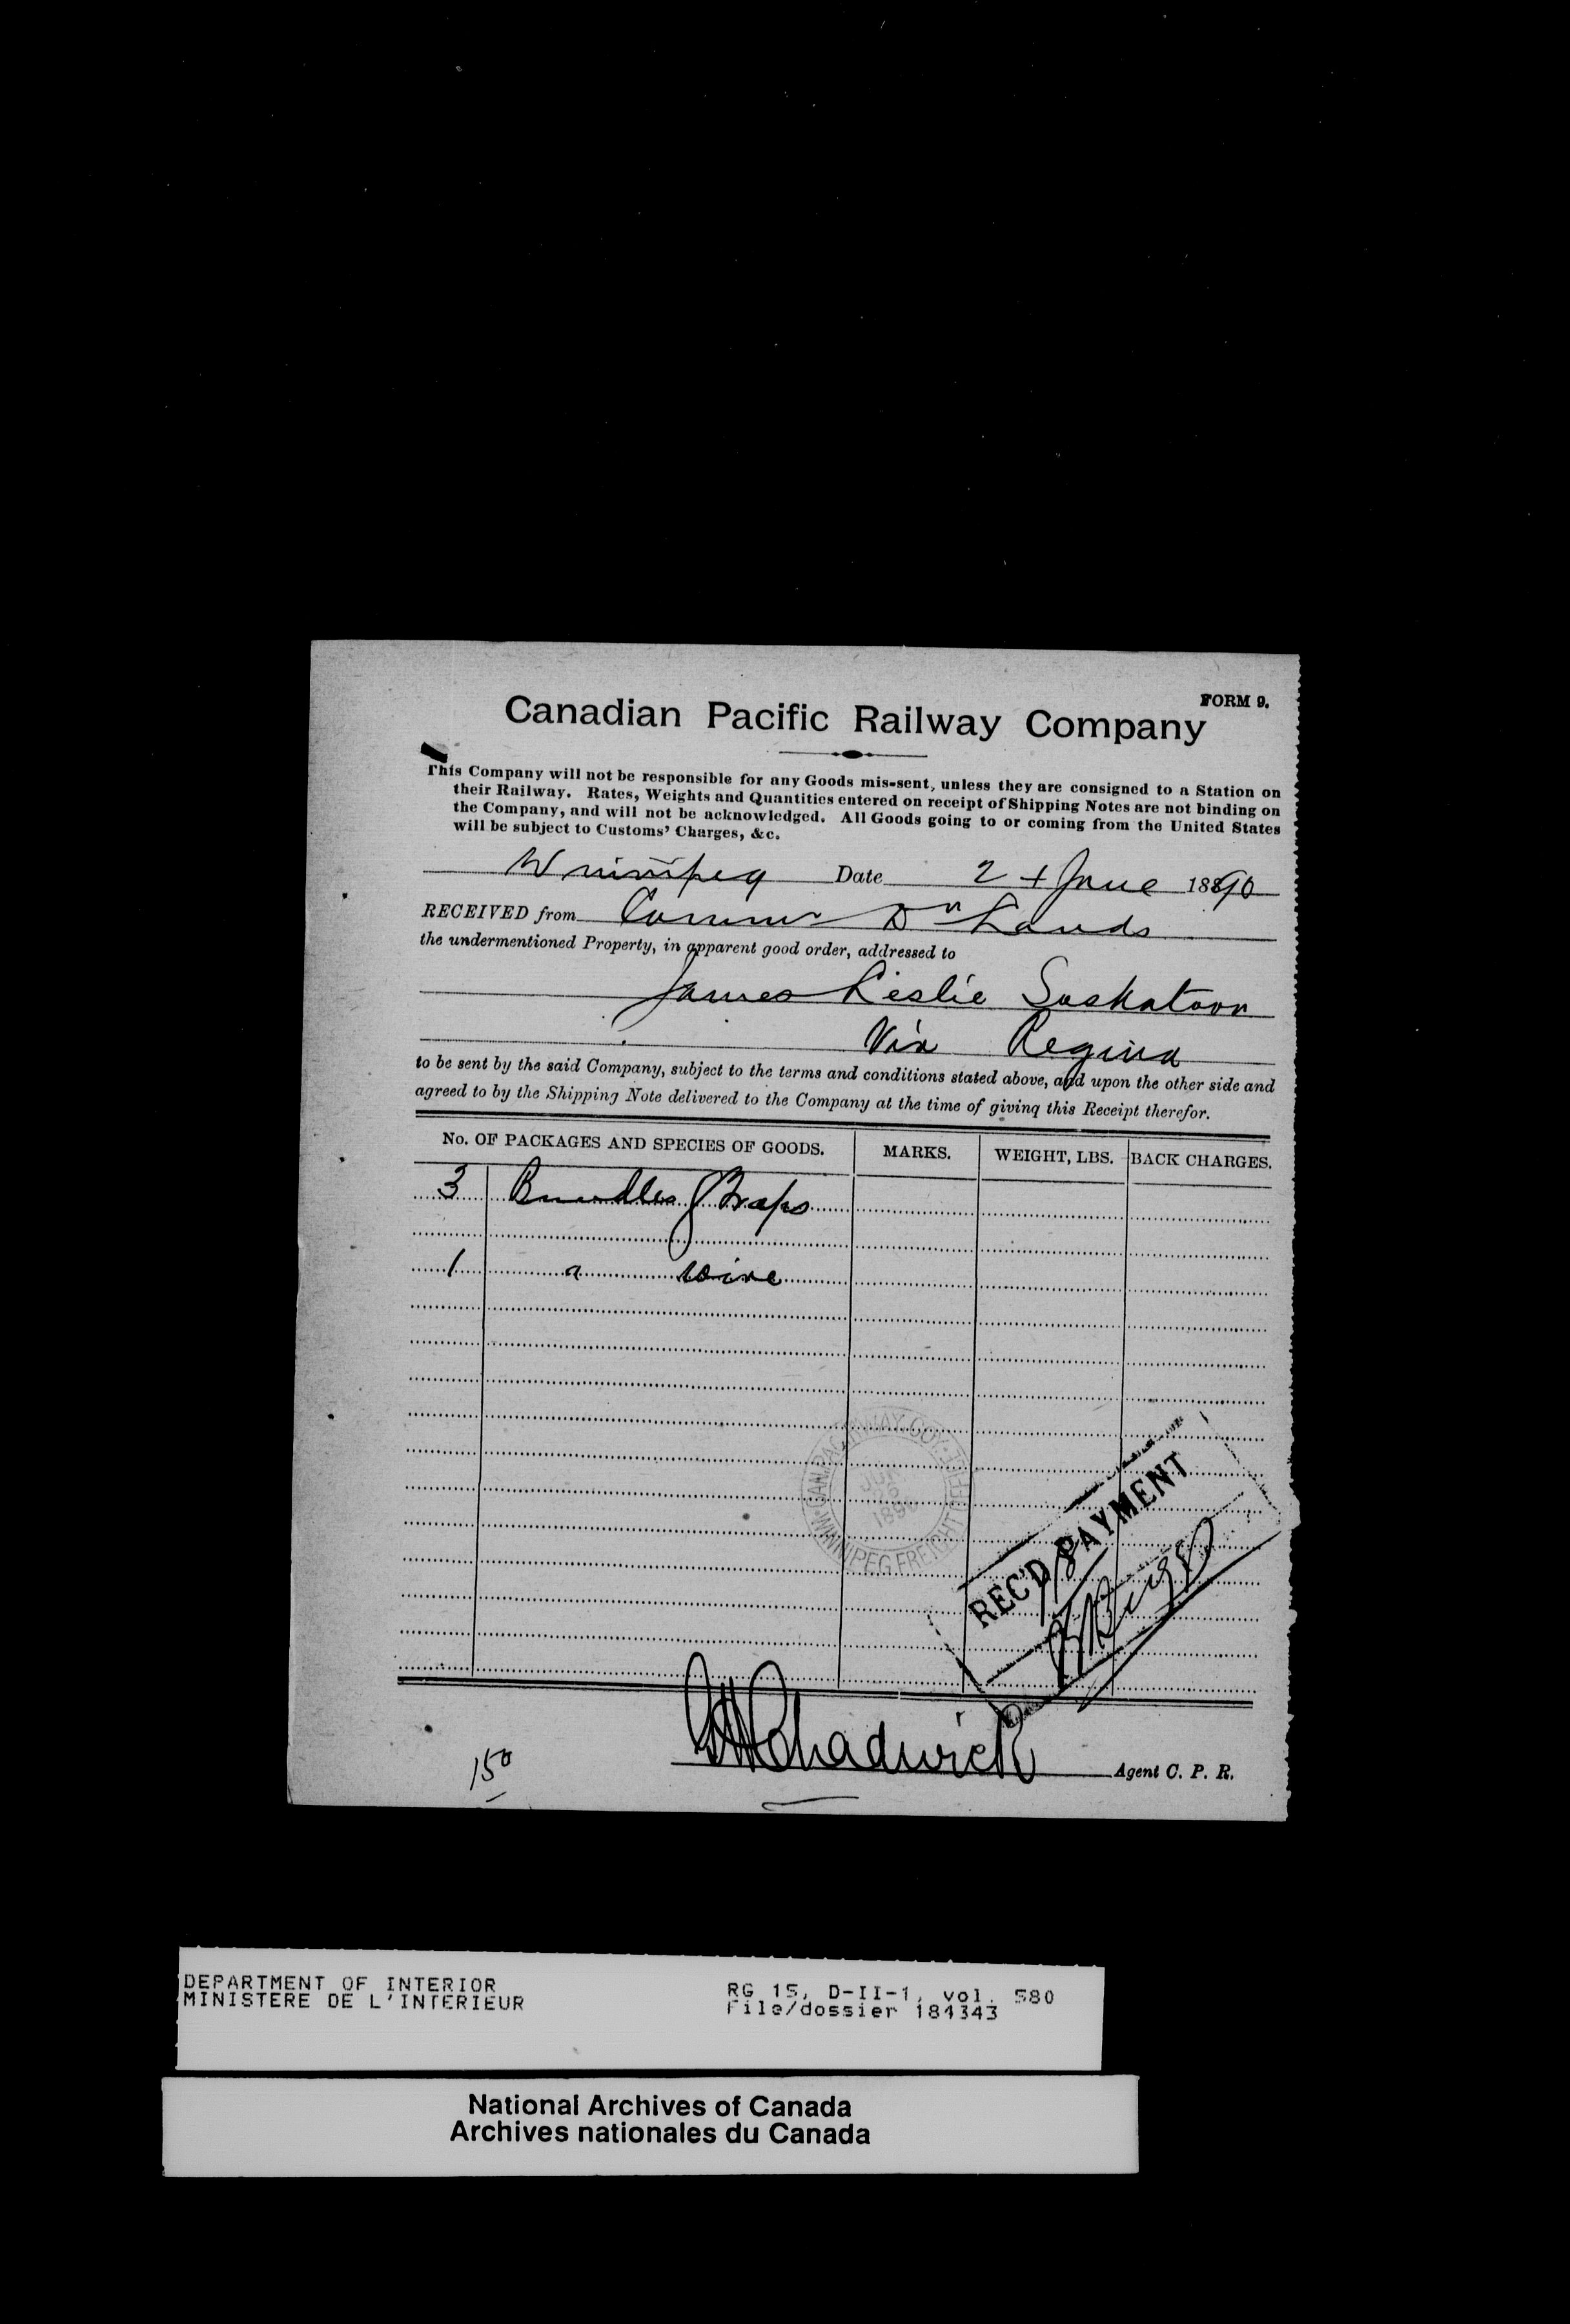 FORM 9.
Canadian Pacific Railway Company
This Company will not be responsible for any Goods mis-sent, unless they are consigned to a Station on
their Railway. Rates, Weights and Quantities entered on receipt of Shipping Notes are not binding on
the Company, and will not be acknowledged. All Goods going to or coming from the United States
will be subject to Customs' Charges, &c.
Winnipeg Date 24 June 1890
RECEIVED from Commr Dn Lands
the undermentioned Property, in apparent good order, addressed to
James Leslie Saskatoon
Via Regina
to be sent by the said Company, subject to the terms and conditions stated above, and upon the other side and
agreed to by the Shipping Note delivered to the Company at the time of giving this Receipt therefor.
No. OF PACKAGES AND SPECIES OF GOODS. MARKS. WEIGHT, LBS. BACK CHARGES.
3 Bundles
1 " wire
CAN. PAC. R'WAY. COY.
1890
WINNIPEG FREIGHT OFFICE
REC'D PAYMENT
Chadwick Agent C. P. R.
150
DEPARTMENT OF INTERIOR
MINISTERE DE L'INTERIEUR
RG 15, D-II-1, vol. 580
File/dossier 184343
National Archives of Canada
Archives nationales du Canada